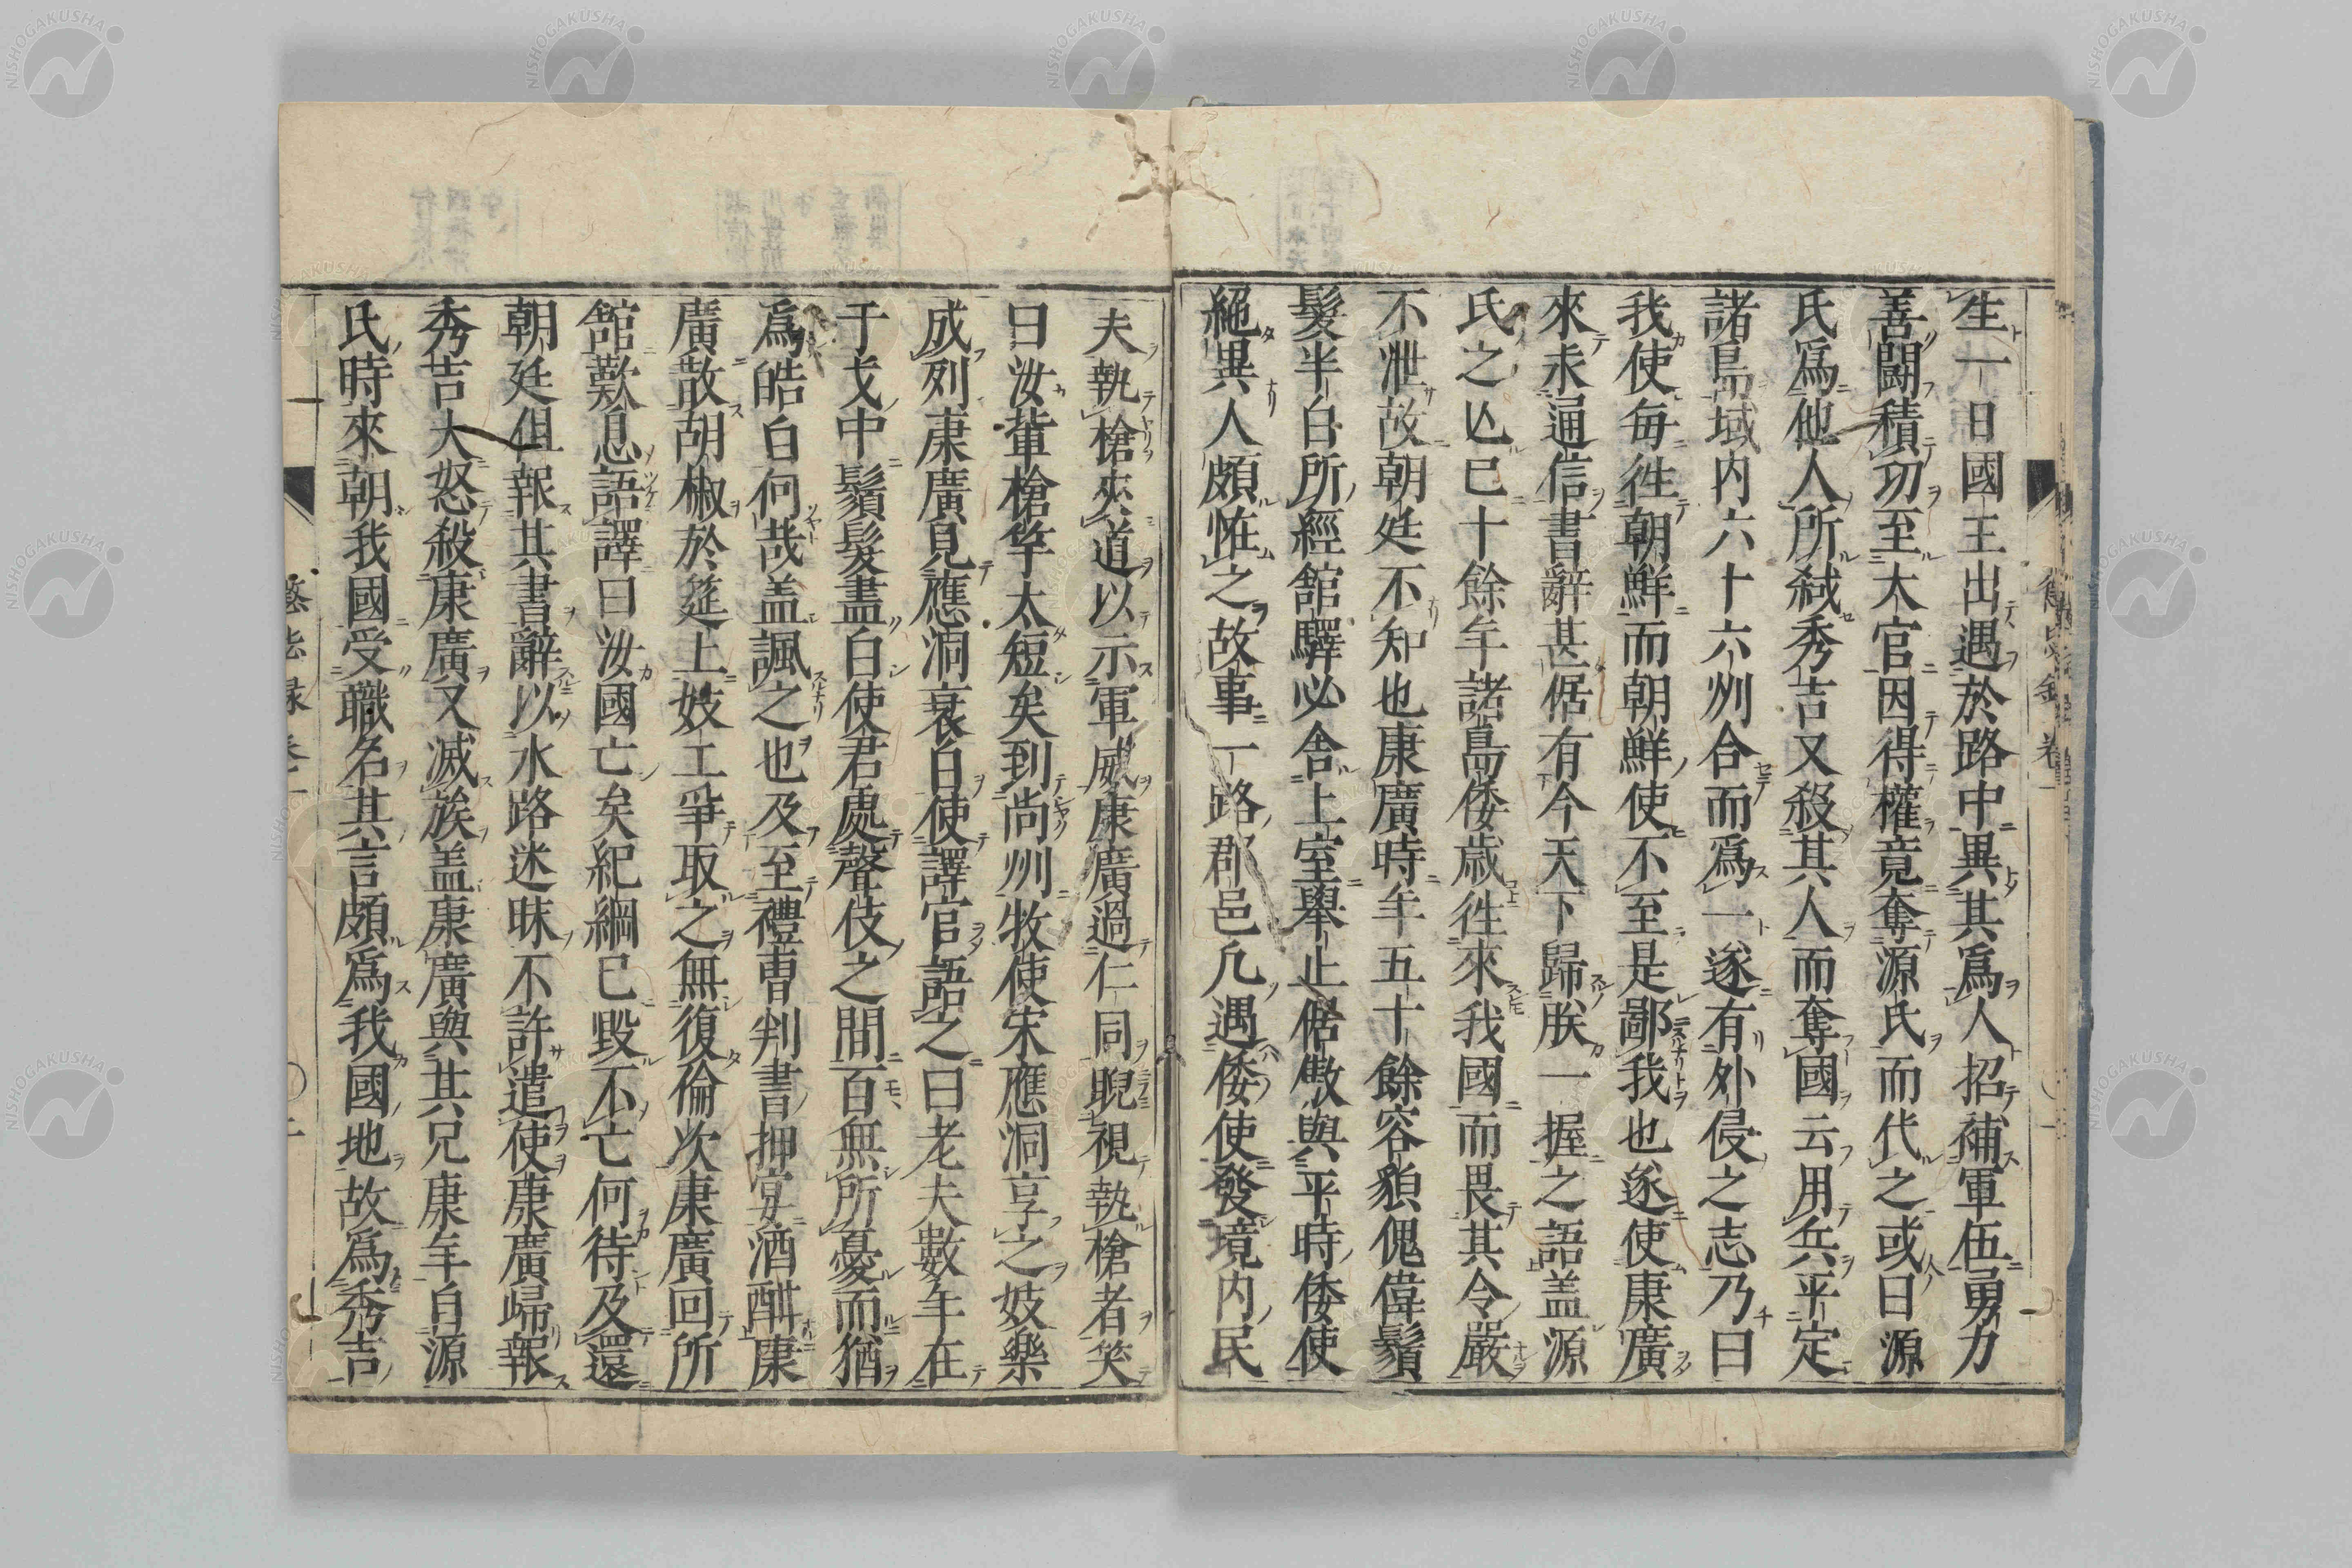 生一日國王出遇於路中異其爲人招補軍伍勇力
善闘積功至大官因得權竟奪源氏而代之或曰源
氏爲他人所弑秀吉又殺其人而奪國云用兵平定
諸島域内六十六州合而爲一遂有外侵之志乃曰
我使每徃朝鮮而朝鮮使不至是鄙我也遂使康廣
來求通信書辭甚倨有今天下歸朕一握之語盖源
氏之亾已十餘年諸島倭歳徃來我國而畏其令嚴
不泄故朝廷不知也康廣時年五十餘容貌傀偉鬚
髮半白所經舘驛必舎上室舉止倨傲與平時倭使
絕異人頗恠之故事一路郡邑凢遇倭使發境内民
夫執槍夾道以示軍威康廣過仁同睨視執槍者笑
曰汝輩槍竿太短矣到尚州牧使宋應洞享之妓樂
成列康廣見應洞衰白使譯官語之曰老夫數年在
于戈中鬚髮盡白使君處聲伎之間百無所憂而猶
爲皓白何哉盖諷之也及至禮曹判書押宴酒酣康
廣散胡椒於筵上妓工爭取之無復倫次康廣回所
舘歎息語譯曰汝國亡矣紀綱已毀不亡何待及還
朝廷但報其書辭以水路迷昧不許遣使康廣歸報
秀吉大怒殺康廣又滅族盖康廣與其兄康年自源
氏時來朝我國受職名其言頗爲我國地故爲秀吉